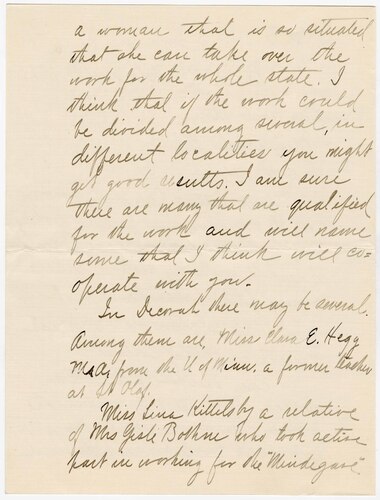 a woman that is so situated
that she can take over the
work for the whole state. I
think that if the work could
be divided among several, in
different localities you might
get good results. I am sure
there are many that are qualified
for the work and will name
some that I think will co=
operate with you.
In Decorah there may be several.
Among them are, Miss Clara E. Hegg
from the U. of Minn. a former teacher
at St Olaf.
Miss Lina Kittelsby a relative
of Mrs Gisle Bothne who took active
part in working for the "Mindegave"